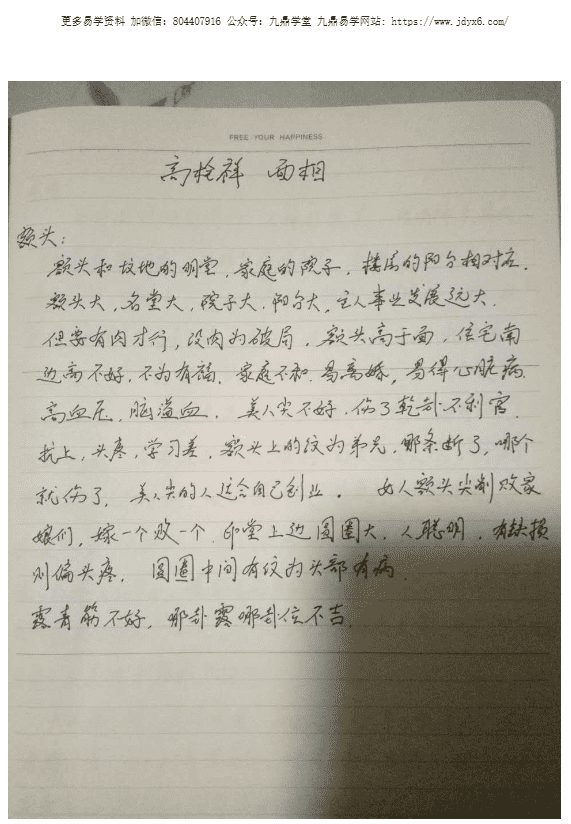 更多易学资料 加微信：804407916 公众号：九鼎学堂 九鼎易学网站：https://www.jdyx6.com/
FREE YOUR HAPPINESS
高栓祥 面相
额头：
额头和坟地的明堂，家庭的院子，楼房的阳台相对应．
额头大，名堂大，院子大．阳台大，主人事业发展远大．
但要有肉才行，没肉为破局，额头高于面，住宅南
边高不好，不为有福．家庭不和．易离婚，易得心脏病
高血压．脑溢血．美人尖不好．伤了乾卦不利官．
抗上，头疼，学习差，额头上的纹为弟兄，哪条断了，哪个
就伤了，美人尖的人适合自己创业． 女人额头尖削败家
娘们，嫁一个败一个．印堂上边圆圈大．人聪明，有缺损
则偏头疼． 圆圈中间有纹为头部有病．
露青筋不好，哪卦露哪卦位不吉．